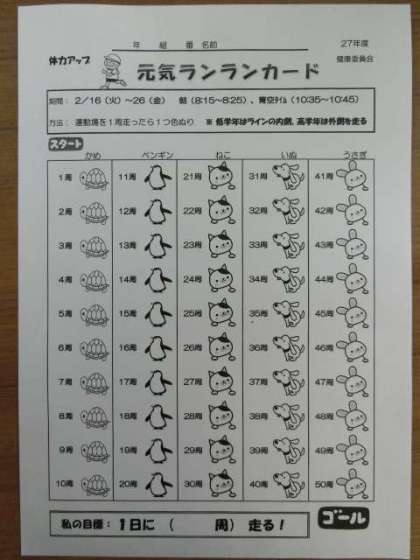 年 組 番 名前
27年度
体力アップ
元気ランランカード
健康委員会
期間： 2／16（火）～26（金） 朝（8:15～8:25）、青空ﾀｲﾑ（10:35～10:45）
方法： 運動場を1周走ったら1つ色ぬり ※ 低学年はラインの内側、高学年は外側を走る
スタート
かめ ペンギン ねこ いぬ うさぎ
1周 11周 21周 31周 41周
2周 12周 22周 32周 42周
3周 13周 23周 33周 43周
4周 14周 24周 34周 44周
5周 15周 25周 35周 45周
6周 16周 26周 36周 46周
7周 17周 27周 37周 47周
8周 18周 28周 38周 48周
9周 19周 29周 39周 49周
10周 20周 30周 40周 50周
私の目標： 1日に （ 周） 走る！
ゴール